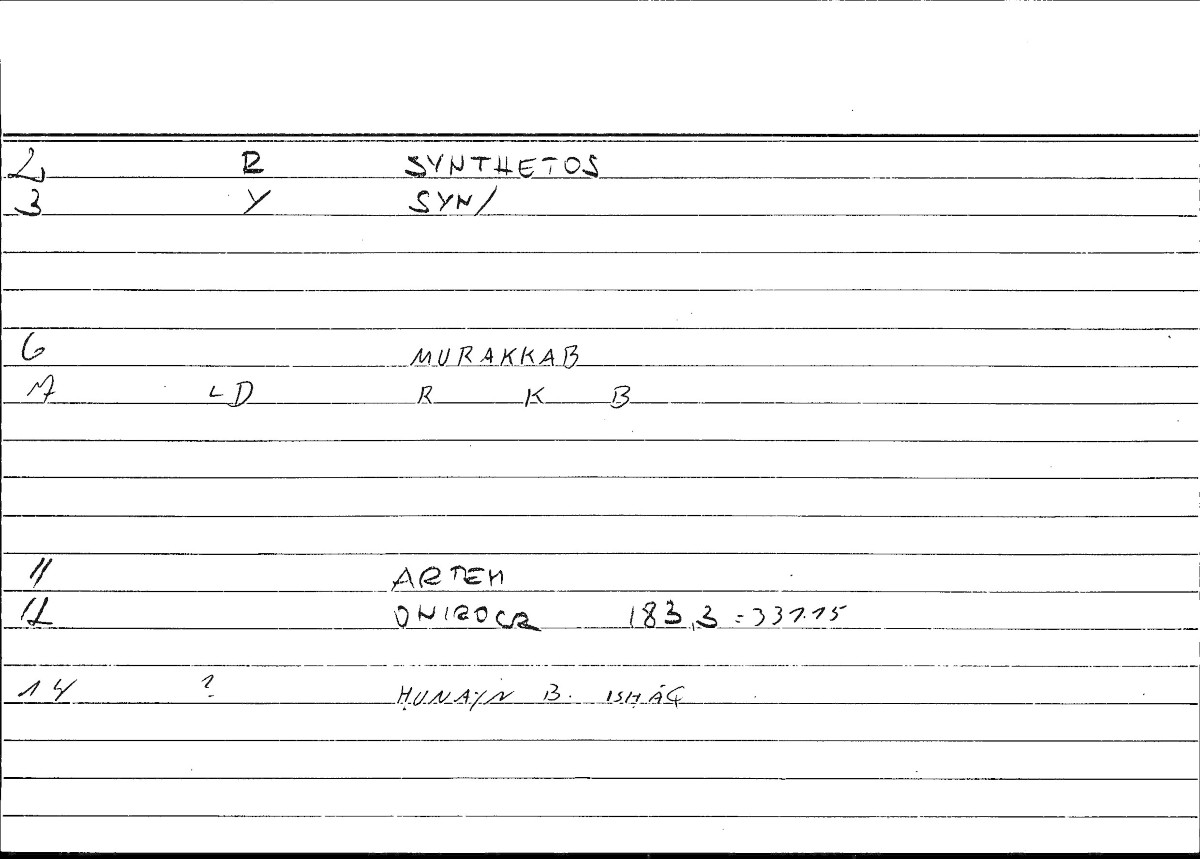 2 R SYNTHETOS
3 Y SYN/
6 MURAKKAB
7 LD R K B
11 ARTEM
12 ONIROCR 183,3 = 331.15
14 ? ḤUNAYN B. ISḤĀQ